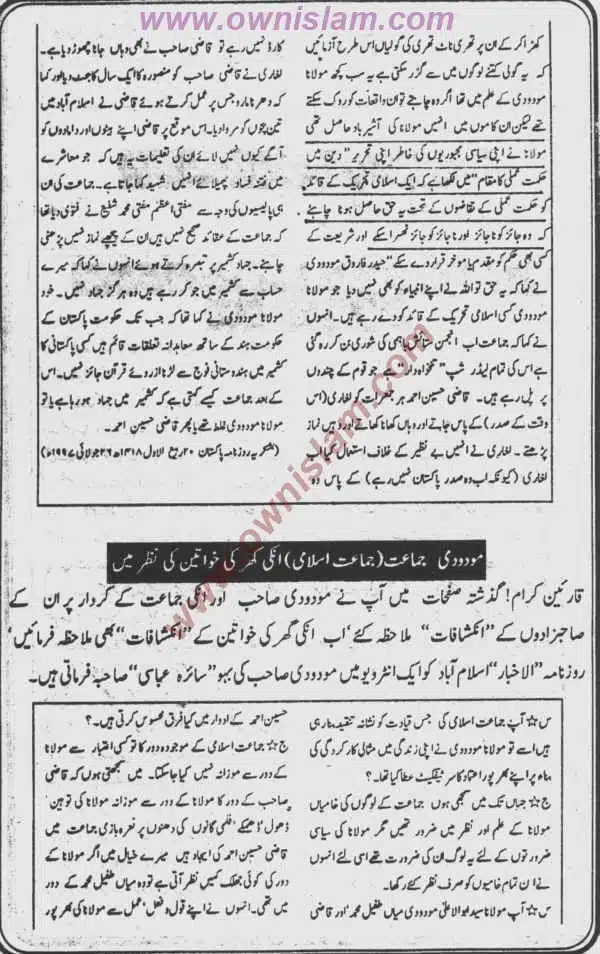 www.ownislam.com
کھڑا کر کے ان پر تھری ناٹ تھری کی گولیاں اس طرح آزمائیں
کہ یہ گولی کتنے لوگوں میں سے گزر سکتی ہے یہ سب کچھ مولانا
مودودی کے علم میں تھا اگر وہ چاہتے تو ان واقعات کو روک سکتے
تھے لیکن ان کاموں میں انہیں مولانا کی آشیر باد حاصل تھی
مولانا نے اپنی سیاسی مجبوریوں کی خاطر اپنی تحریر "دین میں
حکمت عملی کا مقام" میں لکھا ہے کہ ایک اسلامی تحریک کے قائد
کو حکمت عملی کے تقاضوں کے تحت یہ حق حاصل ہونا چاہئے
کہ وہ جائز کو ناجائز اور ناجائز کو جائز ٹھہرا سکے اور شریعت کے
کسی بھی حکم کو مقدم یا موخر قرار دے سکے" حیدر فاروق مودودی
نے کہا کہ یہ حق تو اللہ نے اپنے انبیاء کو بھی نہیں دیا جو مولانا
مودودی کسی اسلامی تحریک کے قائد کو دے رہے ہیں۔ انہوں
نے کہا کہ جماعت اب انجمن ستائش باہمی کی شوری بن کر رہ گئی
ہے اس کی تمام لیڈر شپ "تنخواہ دار" ہے جو قوم کے چندوں
پر پل رہے ہیں۔ قاضی حسین احمد ہر جمعرات کو لغاری (اس
وقت کے صدر) کے پاس جاتے اور وہاں کھانا کھاتے اور وہیں نماز
پڑھتے۔ لغاری نے انہیں بے نظیر کے خلاف استعمال کیا اب
لغاری (کیونکہ اب وہ صدر پاکستان نہیں رہے) کے پاس وہ
کارڈ نہیں رہے تو قاضی صاحب نے بھی وہاں جانا چھوڑ دیا ہے۔
لغاری نے قاضی صاحب کو منصورہ کا ایک سال کا بجٹ دیا اور کہا
کہ دھرنا مارو جس پر عمل کرتے ہوئے قاضی نے اسلام آباد میں
تین بچوں کو مروا دیا۔ اس موقع پر قاضی اپنے بیٹوں اور دامادوں کو
آگے کیوں نہیں لائے ان کی تعلیمات یہ ہیں کہ جو معاشرے
میں فتنہ فساد پھیلائے انہیں شہید کہا جاتا ہے۔ جماعت کی ان
ہی پالیسیوں کی وجہ سے مفتی اعظم مفتی محمد شفیع نے فتویٰ دیا تھا
کہ جماعت کے عقائد صحیح نہیں ہیں ان کے پیچھے نماز نہیں پڑھنی
چاہئے۔ جہاد کشمیر پر تبصرہ کرتے ہوئے انہوں نے کہا کہ میرے
حساب سے کشمیر میں جو کر رہے ہیں وہ ہرگز جہاد نہیں۔ خود
مولانا مودودی نے کہا تھا کہ جب تک حکومت پاکستان کے
حکومت ہند کے ساتھ معاہدانہ تعلقات قائم ہیں کسی پاکستانی کا
کشمیر میں ہندوستانی فوج سے لڑنا ازروئے قرآن جائز نہیں۔ اس
کے بعد جماعت کیسے کہتی ہے کہ کشمیر میں جہاد ہو رہا ہے یا تو
مولانا مودودی غلط تھے یا پھر قاضی حسین احمد۔
(بشکریہ روزنامہ پاکستان ۲۰ ربیع الاول ۱۴۱۸ھ ۲۶ جولائی ۱۹۹۷ء)
مودودی جماعت (جماعت اسلامی) انکی گھر کی خواتین کی نظر میں
قارئین کرام! گذشتہ صفحات میں آپ نے مودودی صاحب اور انکی جماعت کے کردار پر ان کے
صاحبزادوں کے "انکشافات" ملاحظہ کئے' اب انکی گھر کی خواتین کے "انکشافات" بھی ملاحظہ فرمائیں'
روزنامہ "الاخبار" اسلام آباد کو ایک انٹرویو میں مودودی صاحب کی بہو "سائرہ عباسی" صاحبہ فرماتی ہیں۔
س☆ آپ جماعت اسلامی کی جس قیادت کو نشانہ تنقید بنا رہی
ہیں اسے تو مولانا مودودی نے اپنی زندگی میں مثالی کارکردگی کی
بناء پر اپنے بھرپور اعتماد کا سرٹیفکیٹ عطا کیا تھا۔؟
ج☆ جہاں تک میں سمجھی ہوں جماعت کے لوگوں کی خامیاں
مولانا کے علم اور نظر میں ضرور تھیں مگر مولانا کی سیاسی
ضرورتوں کے لئے یہ لوگ ان کی ضرورت تھے اسی لئے انہوں
نے ان تمام خامیوں کو صرف نظر کئے رکھا۔
س☆ آپ مولانا سید ابوالاعلیٰ مودودی میاں طفیل محمد' اور قاضی
حسین احمد کے ادوار میں کیا فرق محسوس کرتی ہیں۔؟
ج☆ جماعت اسلامی کے موجودہ دور کا تو کسی اعتبار سے مولانا
کے دور سے موازنہ نہیں کیا جا سکتا۔ میں سمجھتی ہوں کہ قاضی
صاحب کے دور کا مولانا کے دور سے موازنہ مولانا کی توہین ہے
ڈھول ڈھمکے' فلمی گانوں کی دھنوں پر نعرہ بازی جماعت میں
قاضی حسین احمد کی ایجاد ہیں میرے خیال میں اگر مولانا کے
دور کی کوئی جھلک کہیں نظر آتی ہے تو وہ میاں طفیل محمد کے دور
میں تھی۔ انہوں نے اپنے قول و فعل' عمل سے مولانا کی بھرپور
www.ownislam.com